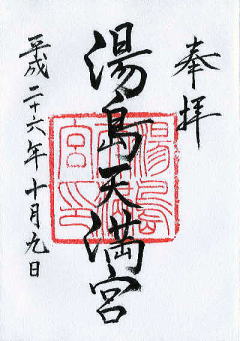 奉拝
湯島天満宮
平成二十六年十月九日